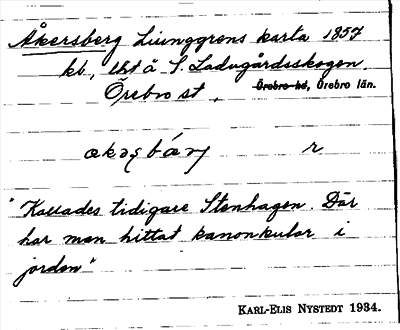 Åkersberg Ljunggrens karta 1857
kb., lht å S. Ladugårdsskogen.
Örebro st, Örebro hd, Örebro län.
r
"Kallades tidigare Stenhagen. Där
har man hittat kanonkulor i
jorden"
KARL-ELIS NYSTEDT 1934.